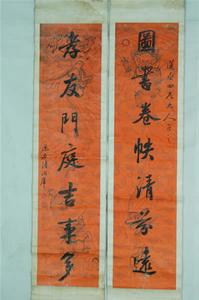 圖書卷帙清芬遠
孝友門庭吉事多